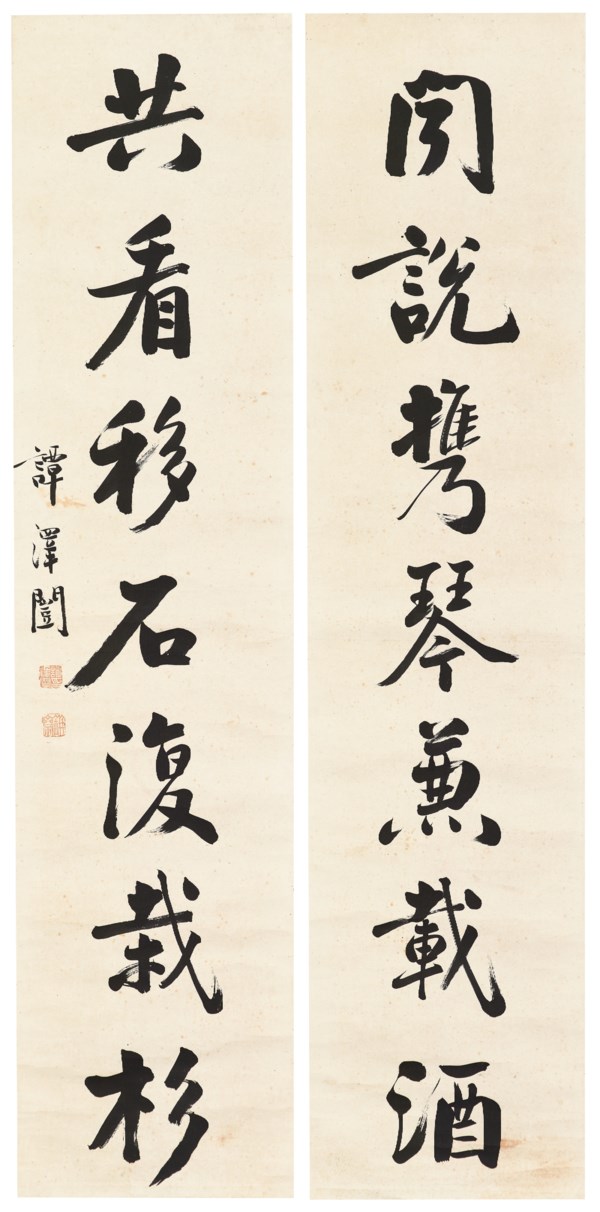 聞說攜琴兼載酒
共看移石復栽杉
譚澤闓